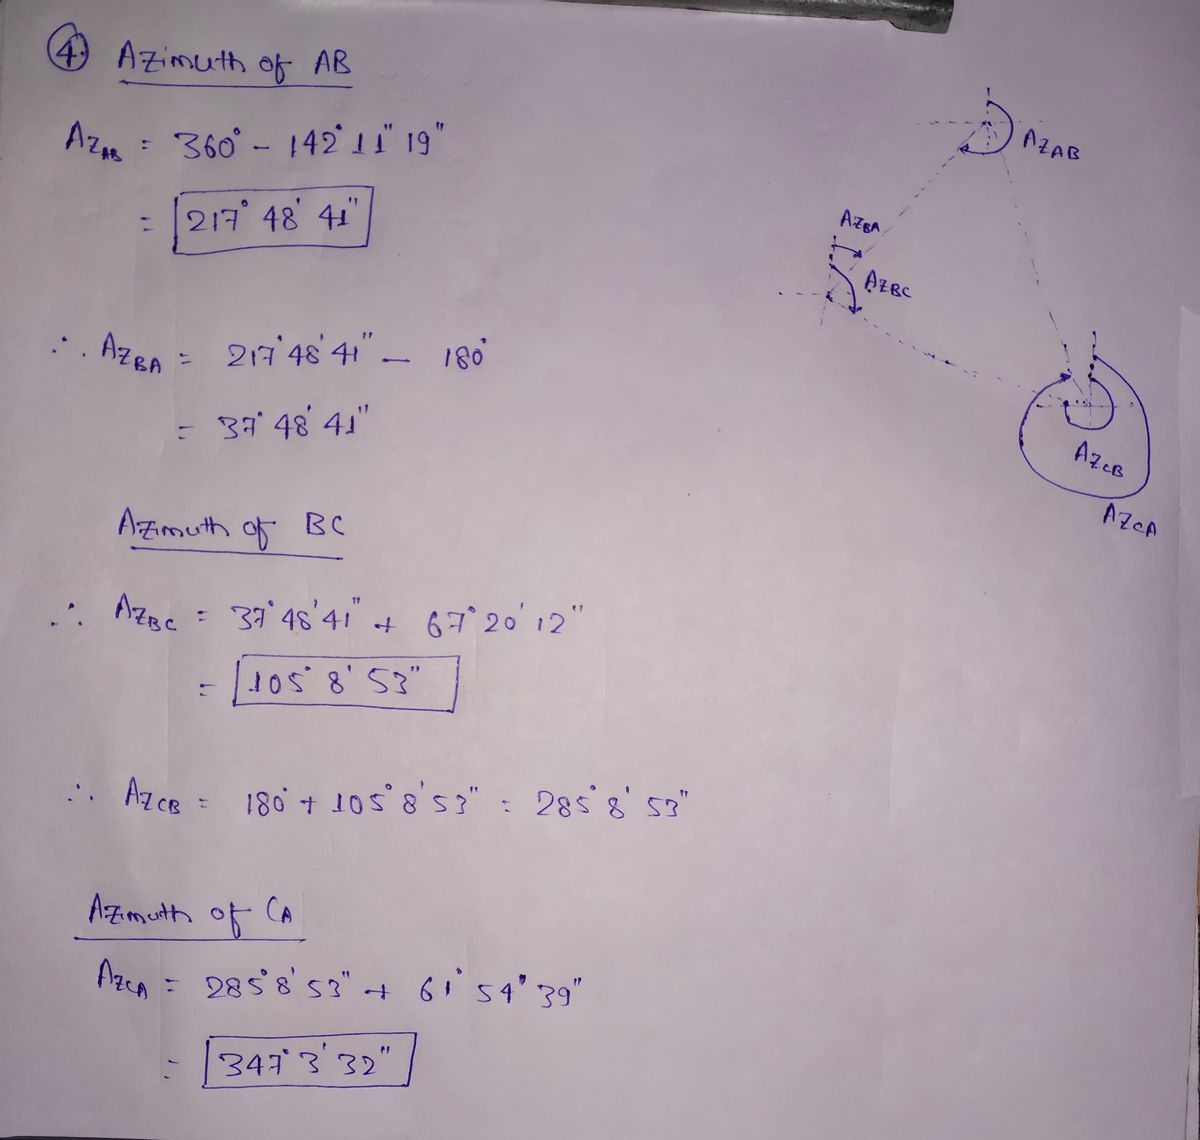 ④ Azimuth of AB
AzAB = 360° - 142° 11" 19"
= 217° 48' 41"
∴ AzBA = 217° 48' 41" - 180°
= 37° 48' 41"
Azimuth of BC
∴ AzBC = 37° 48' 41" + 67° 20' 12"
= 105° 8' 53"
∴ AzCB = 180° + 105° 8' 53" = 285° 8' 53"
Azimuth of CA
AzCA = 285° 8' 53" + 61° 54' 39"
= 347° 3' 32"
AzAB
AzBA
AzBC
AzCB
AzCA